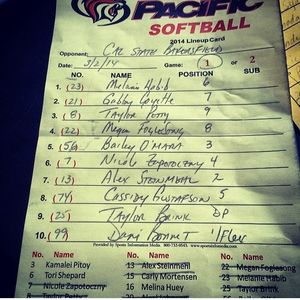 PACIFIC
SOFTBALL
2014 Lineup Card
Opponent: CAL STATE BAKERSFIELD
Date: 3/2/14 Game: 1 or 2
NO. NAME POSITION SUB
1. (23) Melanie Habib 6
2. (21) Gabby Goyette 7
3. (8) TAYLOR Petty 9
4. (22) Megan Foglesong 8
5. (56) Bailey O'MARA 3
6. (7) Nicole ZAPOTOCZNY 4
7. (13) ALEX STEINMEHL 2
8. (74) CASSIDY GUSTAFSON 5
9. (25) TAYLOR BRINK DP
10. (99) DANI BONNET 1/Flex
Provided by Sports Information Media. 800-732-9543. www.sportsinfomedia.com
No. Name No. Name No. Name
3 Kamalei Pitoy 13 Alex Steinmehl 22 Megan Foglesong
6 Tori Shepard 15 Carly Mortensen 23 Melanie Habib
7 Nicole Zapotoczny 16 Melina Huey 25 Taylor Brink
8 Taylor Petty